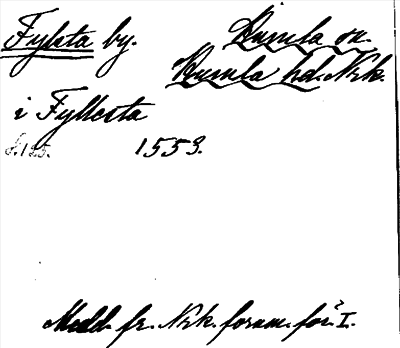 Fylsta by. Kumla sn.
Kumla hd. Nrk.
i Fyllesta
s. 125. 1553.
Medd. fr. Nrk. fornm.för. I.